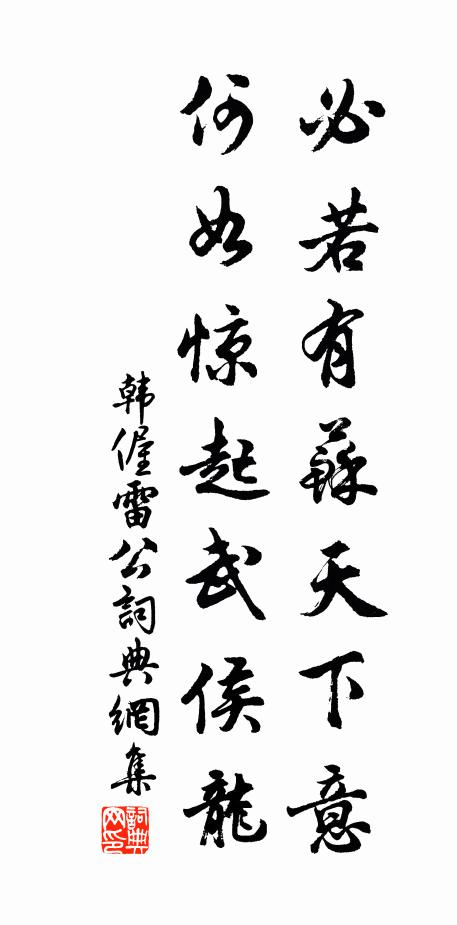 必若有蘇天下意
何如惊起武侯龍
韩偓雷公詞典網集
詞典网印